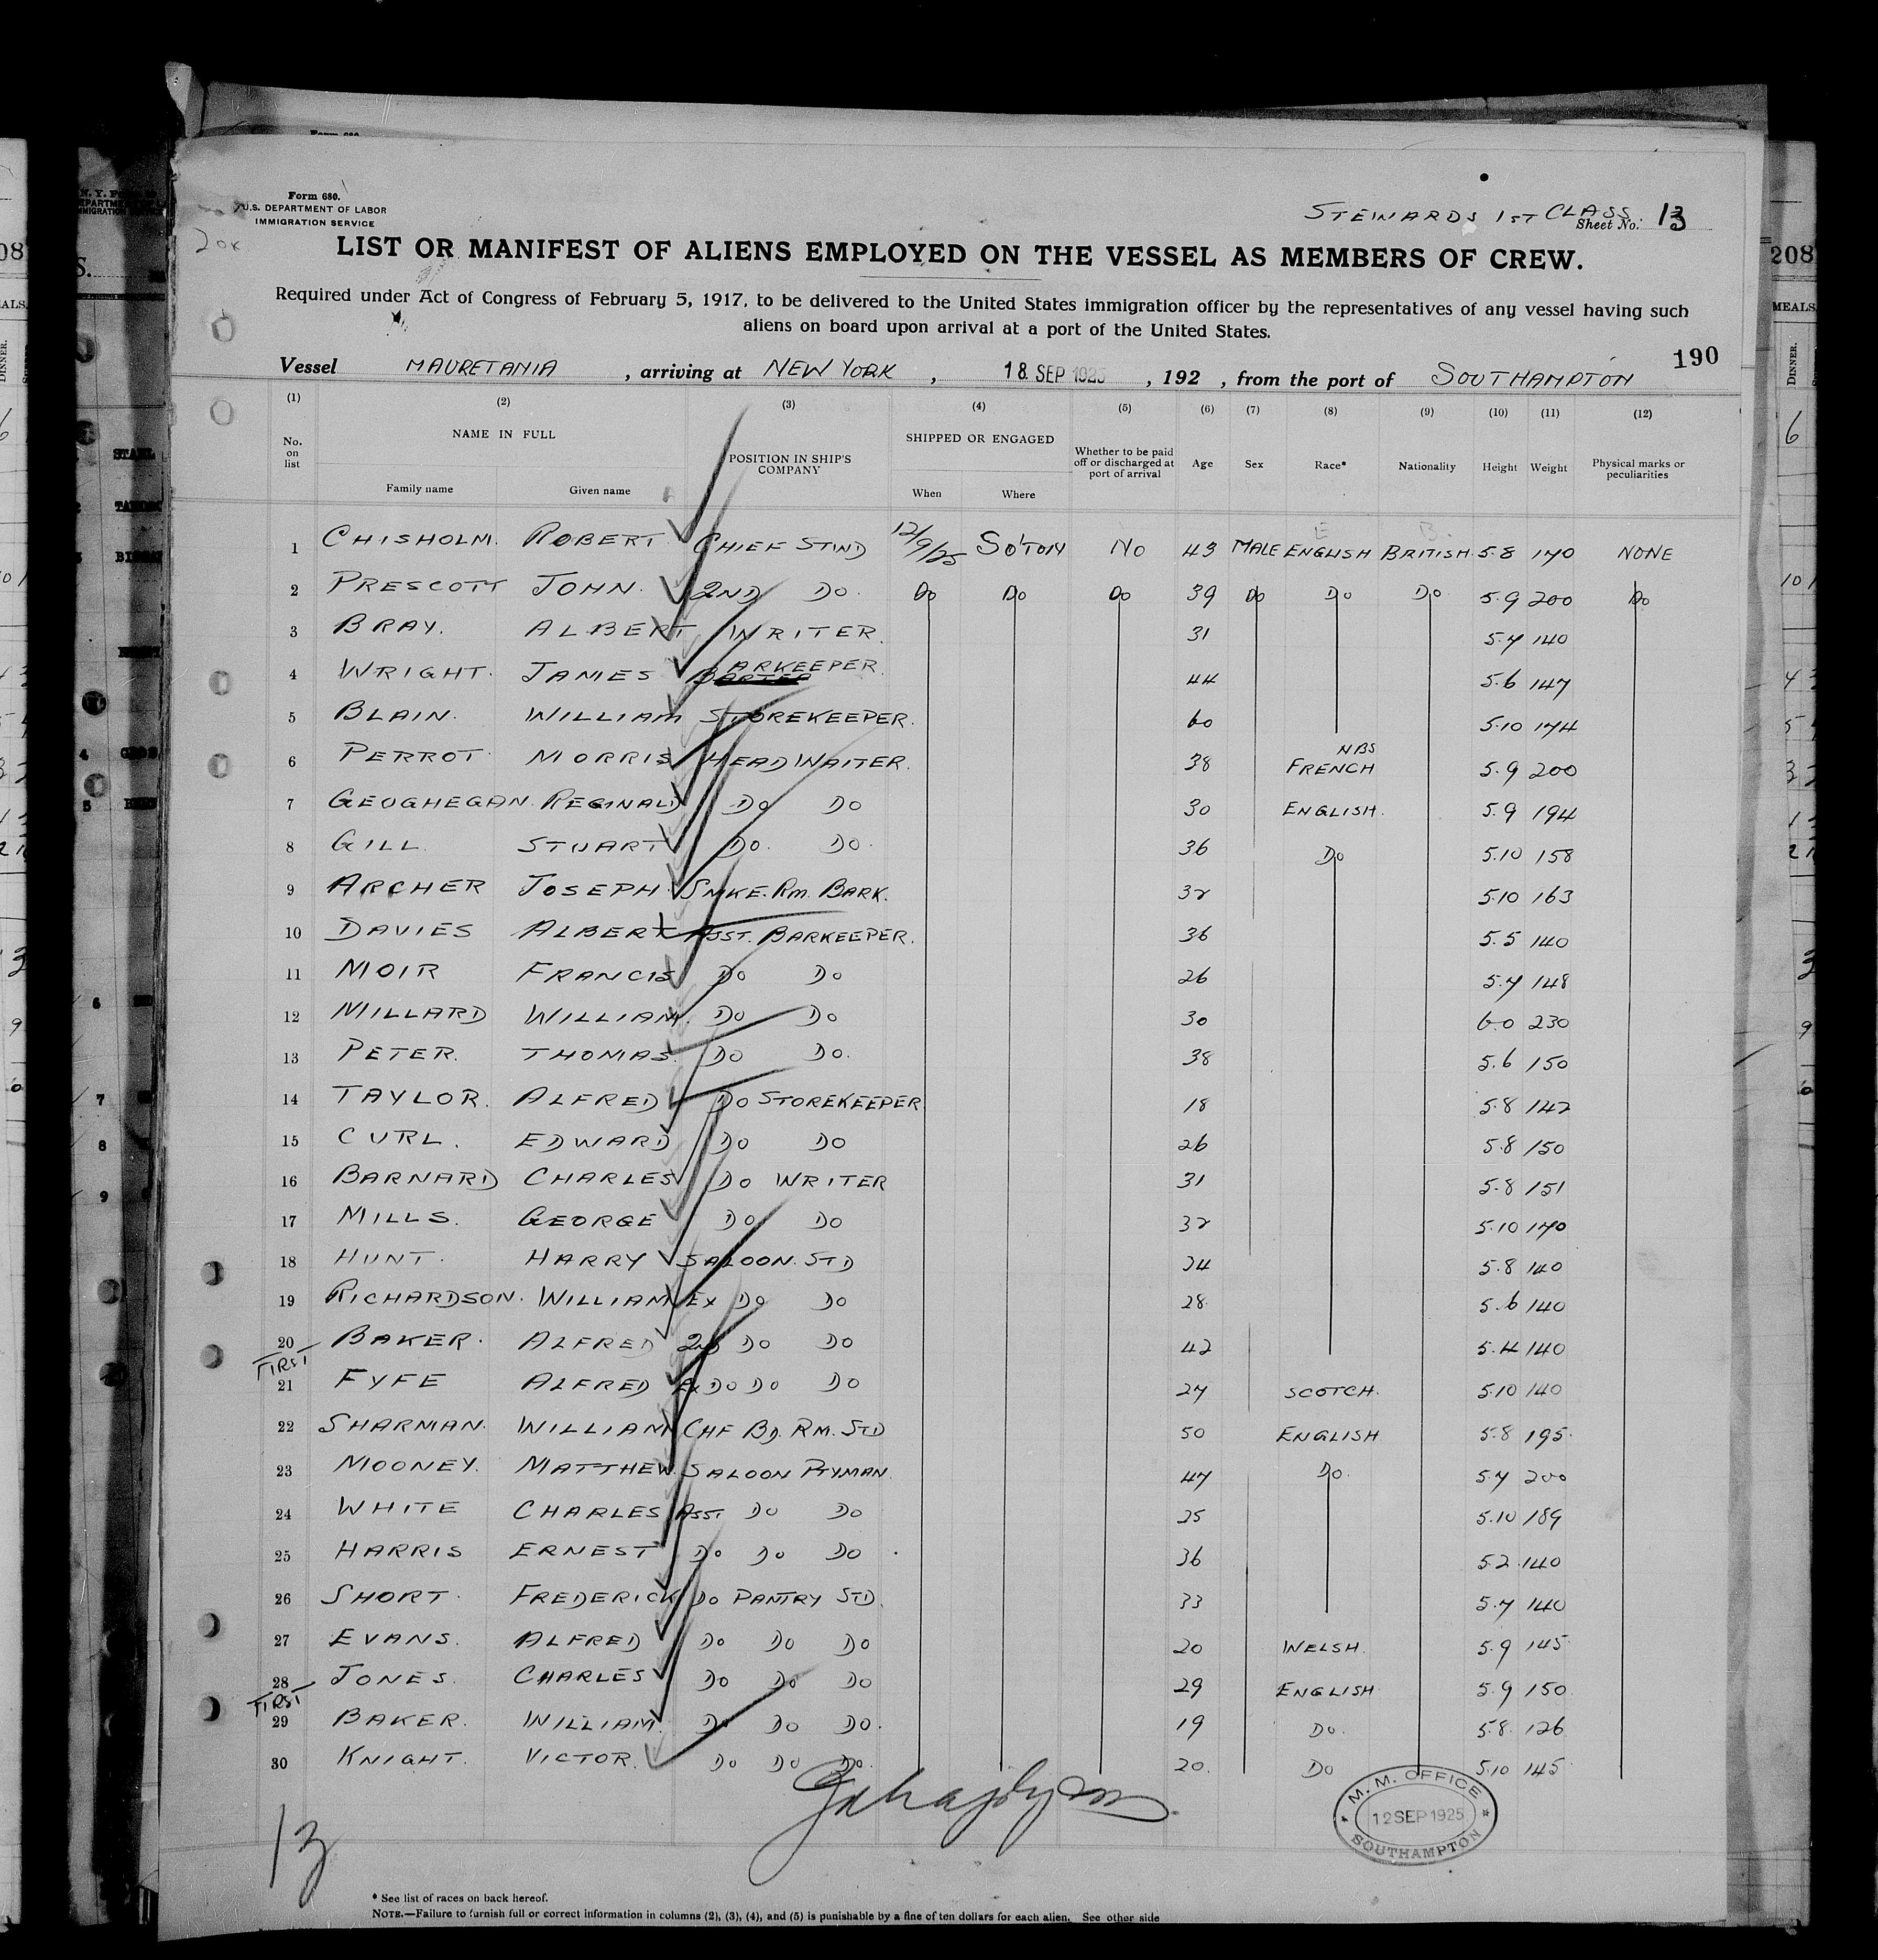 Form 680.
U.S. DEPARTMENT OF LABOR
IMMIGRATION SERVICE
STEWARDS 1ST CLASS
Sheet No. 13
LIST OR MANIFEST OF ALIENS EMPLOYED ON THE VESSEL AS MEMBERS OF CREW.
Required under Act of Congress of February 5, 1917, to be delivered to the United States immigration officer by the representatives of any vessel having such
aliens on board upon arrival at a port of the United States.
190
Vessel MAURETANIA, arriving at NEW YORK, 18 SEP 1925, 192 , from the port of SOUTHAMPTON
(1) (2) (3) (4) (5) (6) (7) (8) (9) (10) (11) (12)
No. on list NAME IN FULL Family name Given name POSITION IN SHIP'S COMPANY SHIPPED OR ENGAGED When Where Whether to be paid off or discharged at port of arrival Age Sex Race* Nationality Height Weight Physical marks or peculiarities
1 CHISHOLM. ROBERT CHIEF STWD 12/9/25 SO'TON NO 43 MALE ENGLISH BRITISH 5.8 170 NONE
2 PRESCOTT JOHN. 2ND DO. DO DO DO 39 DO DO DO 5.9 200 DO
3 BRAY. ALBERT WRITER. 31 5.7 140
4 WRIGHT. JAMES BARKEEPER 44 5.6 147
5 BLAIN. WILLIAM STOREKEEPER. 60 5.10 174
6 PERROT MORRIS HEAD WAITER. 38 NBS FRENCH 5.9 200
7 GEOGHEGAN. REGINALD DO DO 30 ENGLISH. 5.9 194
8 GILL STUART DO. DO. 36 DO 5.10 158
9 ARCHER JOSEPH. SMKE. RM. BARK. 32 5.10 163
10 DAVIES ALBERT ASST. BARKEEPER. 36 5.5 140
11 MOIR FRANCIS DO DO 26 5.7 148
12 MILLARD WILLIAM. DO DO 30 6.0 230
13 PETER. THOMAS. DO DO. 38 5.6 150
14 TAYLOR. ALFRED DO STOREKEEPER 18 5.8 142
15 CURL. EDWARD DO DO 26 5.8 150
16 BARNARD CHARLES DO WRITER 31 5.8 151
17 MILLS. GEORGE DO DO 32 5.10 170
18 HUNT. HARRY SALOON. STD 34 5.8 140
19 RICHARDSON. WILLIAM EX DO DO 28 5.6 140
20 BAKER. ALFRED 2ND DO DO 42 5.4 140
FIRST
21 FYFE ALFRED EX DO DO DO 27 SCOTCH. 5.10 140
22 SHARMAN. WILLIAM CHF BD. RM. STD 50 ENGLISH 5.8 195
23 MOONEY. MATTHEW. SALOON PTYMAN. 47 DO. 5.7 200
24 WHITE CHARLES ASST DO DO 25 5.10 189
25 HARRIS ERNEST DO DO DO 36 5.2 140
26 SHORT. FREDERICK DO PANTRY STD. 33 5.7 140
27 EVANS. ALFRED DO DO DO 20 WELSH. 5.9 145
28 JONES. CHARLES DO DO DO 29 ENGLISH 5.9 150
FIRST
29 BAKER. WILLIAM. DO DO DO. 19 DO. 5.8 126
30 KNIGHT. VICTOR. DO DO DO. 20. DO 5.10 145
M. M. OFFICE
12 SEP 1925
SOUTHAMPTON
13
* See list of races on back hereof.
NOTE.—Failure to furnish full or correct information in columns (2), (3), (4), and (5) is punishable by a fine of ten dollars for each alien. See other side